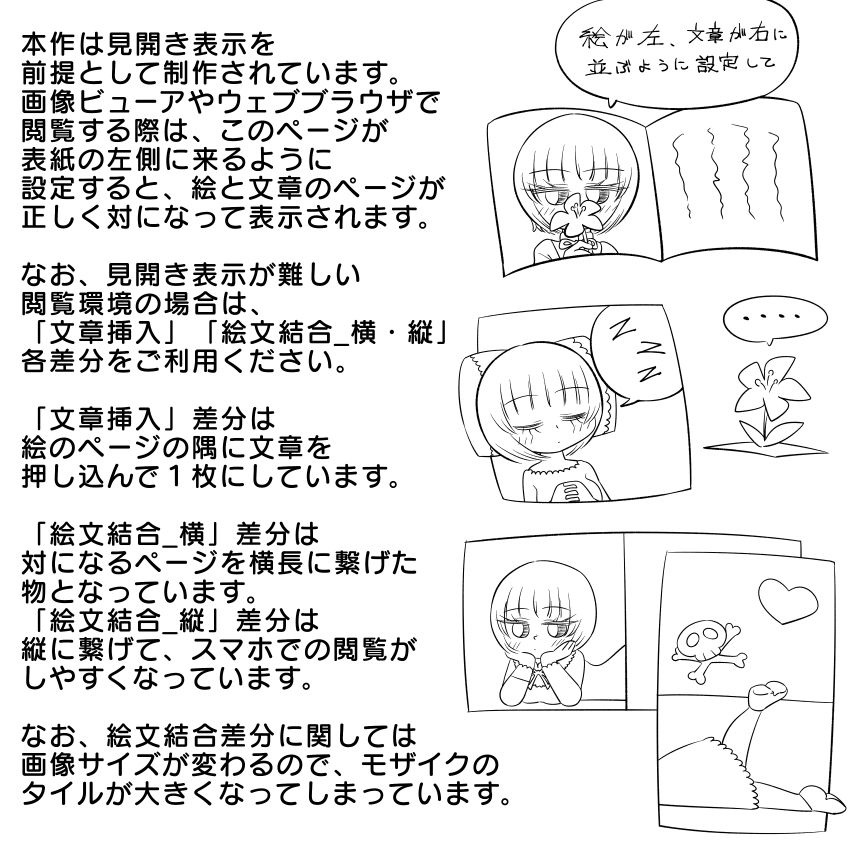 本作は見開き表示を
前提として制作されています。
画像ビューアやウェブブラウザで
閲覧する際は、このページが
表紙の左側に来るように
設定すると、絵と文章のページが
正しく対になって表示されます。
なお、見開き表示が難しい
閲覧環境の場合は、
「文章挿入」「絵文結合_横・縦」
各差分をご利用ください。
「文章挿入」差分は
絵のページの隅に文章を
押し込んで１枚にしています。
「絵文結合_横」差分は
対になるページを横長に繋げた
物となっています。
「絵文結合_縦」差分は
縦に繋げて、スマホでの閲覧が
しやすくなっています。
なお、絵文結合差分に関しては
画像サイズが変わるので、モザイクの
タイルが大きくなってしまっています。
絵が左、文章が右に
並ぶように設定して
NNN
・・・・